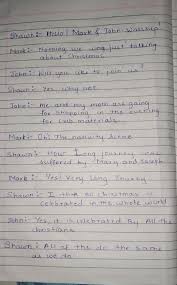 Shawn:- Hello! Mark & John. Wassup!
Mark:- Nothing we was just talking
about Christmas
John:- Will you like to join us?
Shawn:- Yes, why not
John:- Me and my mom are going
for shopping in the evening
for crib materials
Mark:- Oh! The nativity scene
Shawn:- How long journey was
suffered by mary and Joseph
Mark:- Yes! Very long Journey
Shawn:- I christmas is
celebrated in the whole world
John:- Yes, it is celebrated By All the
christians
Shawn:- All of the do the same
as we do